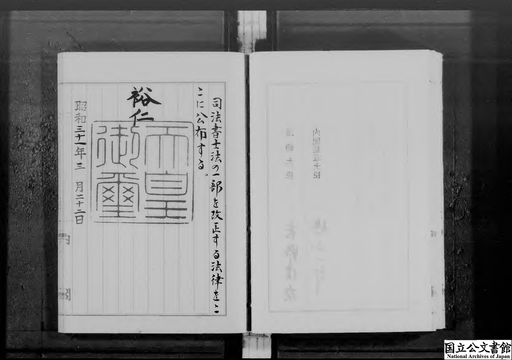 司法書士法の一部を改正する法律をこ
こに公布する。
裕仁
天皇
御璽
昭和三十一年三月二十二日
国立公文書館
National Archives of Japan